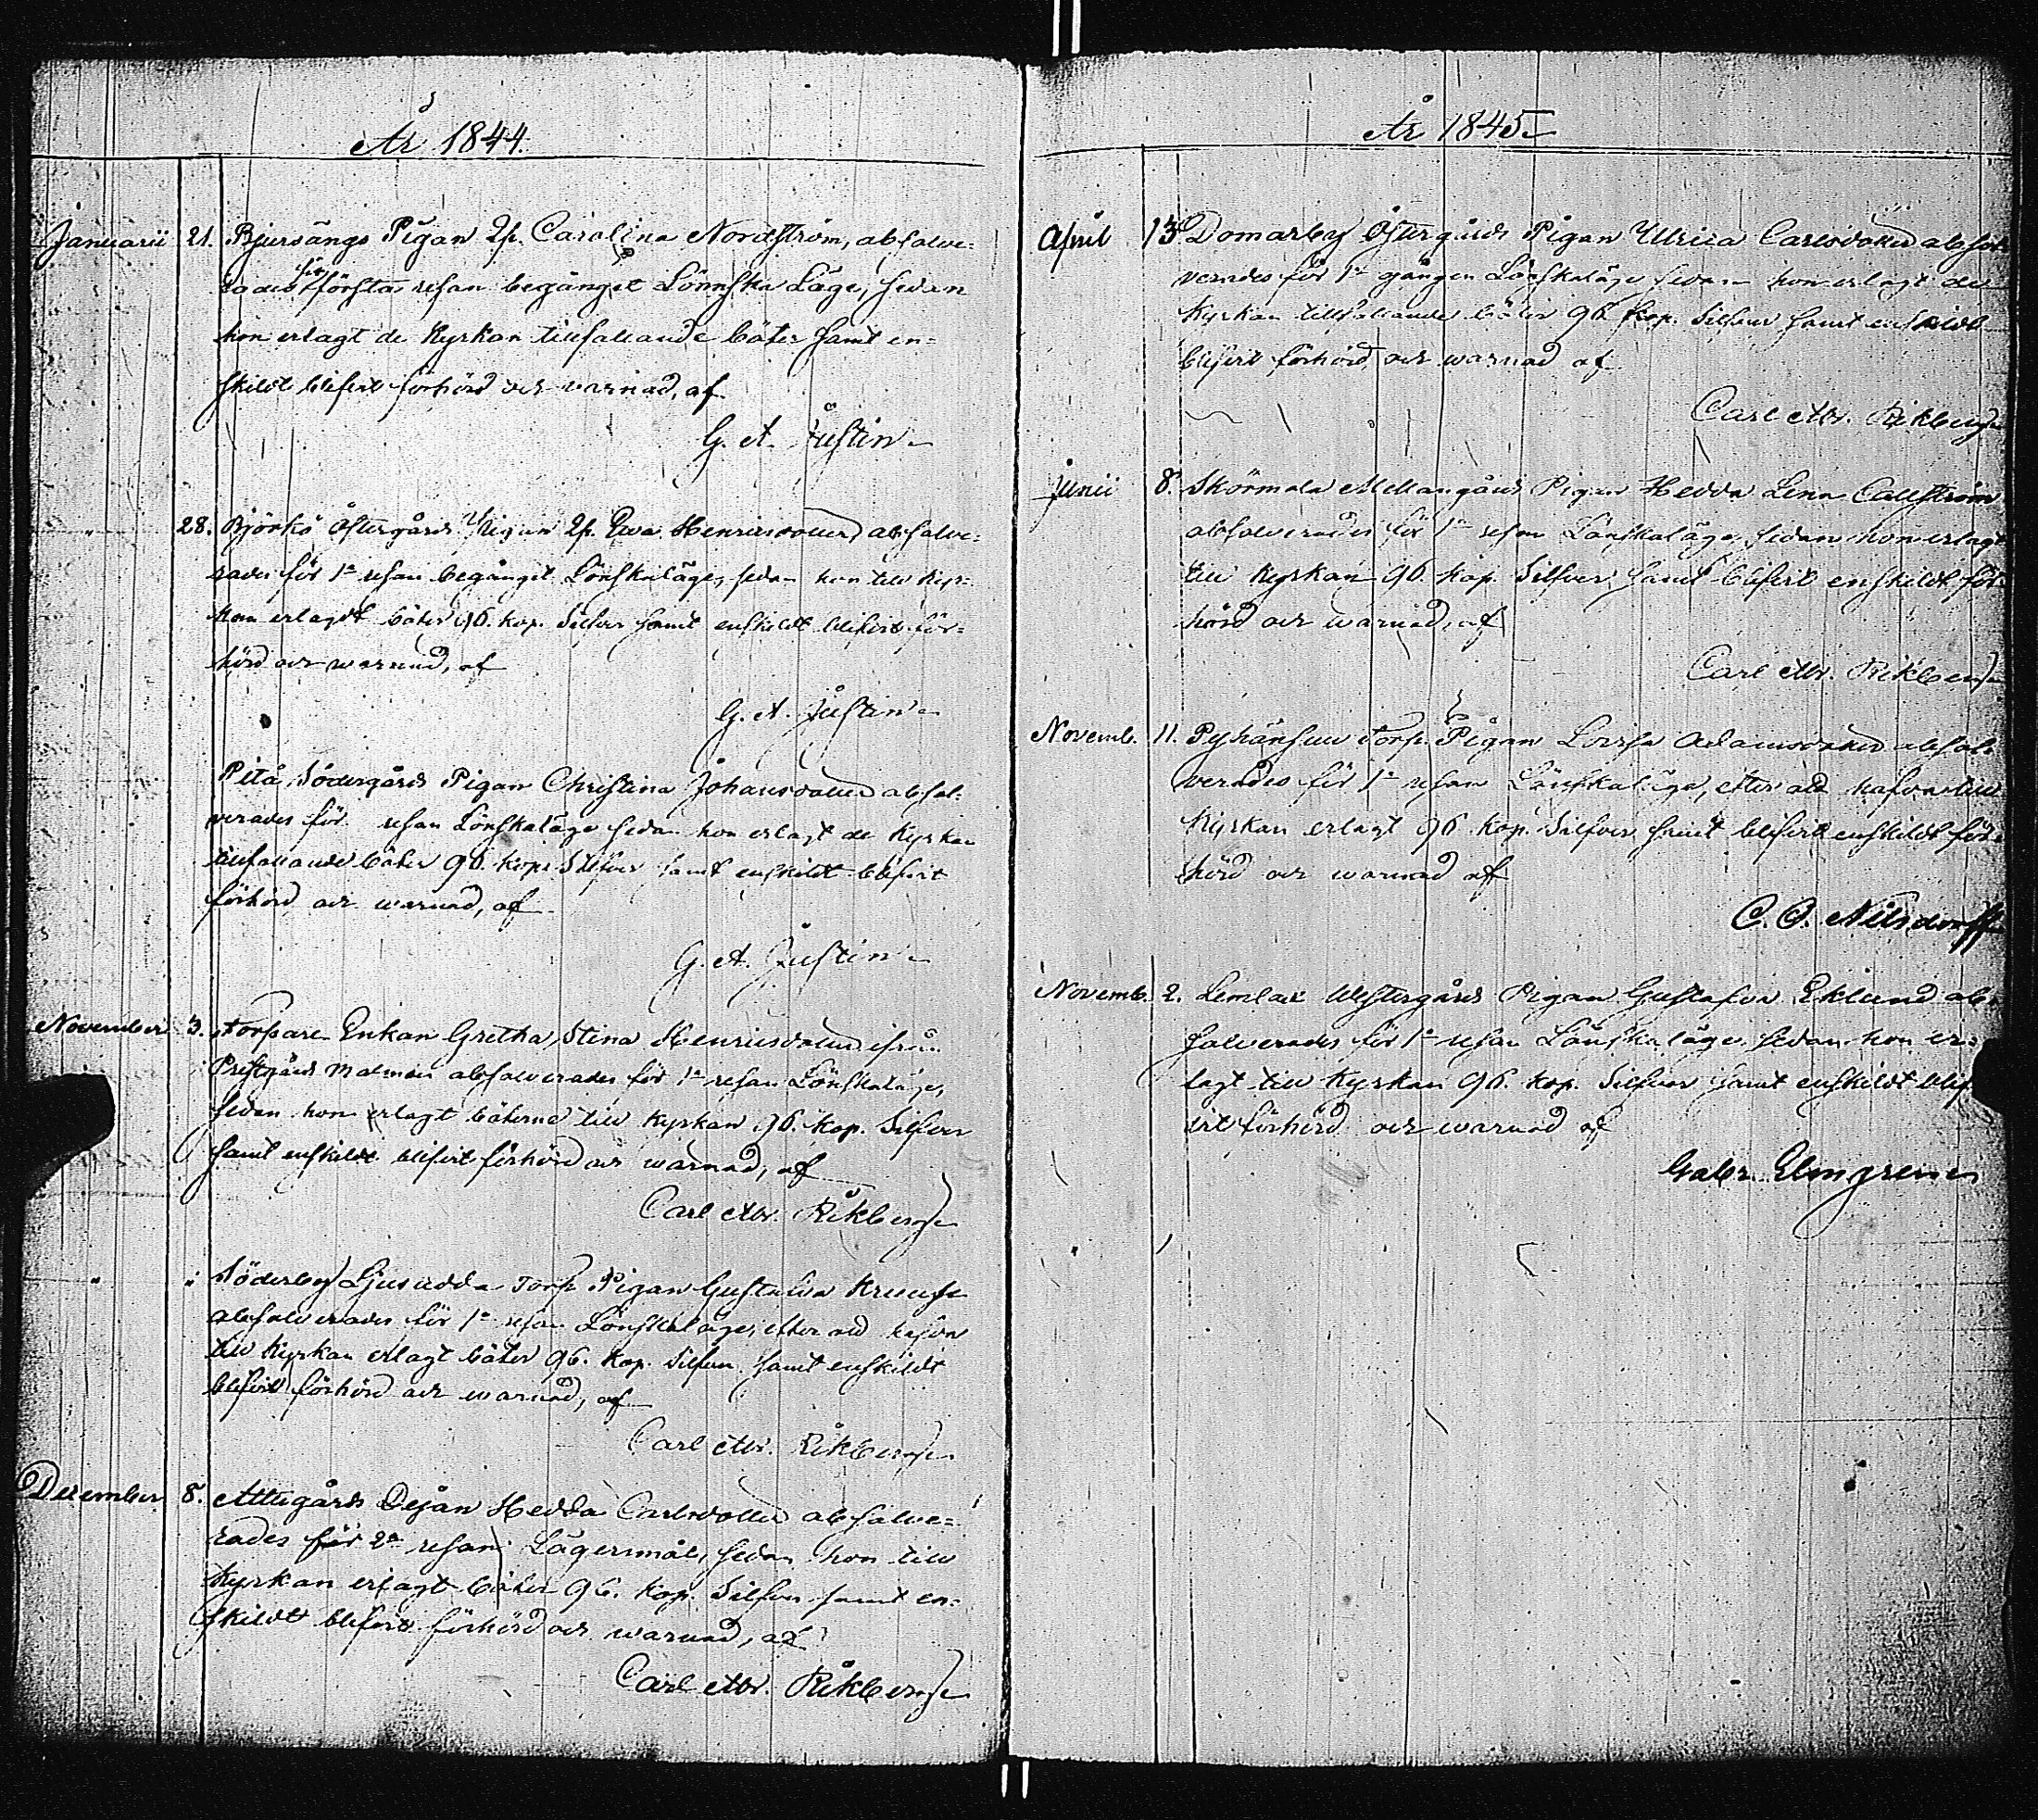 År 1844.
Januarii 21. Bjursängs Pigan Carolina Nordström, absolve=
rades för första resan begånget Lönnska Läge, sedan
hon erlagt de Kyrkan tillfallande böter samt en=
skildt blifvit förhörd och varnad, af
G. A. Justin
28. Björkö Östergårds Pigan Eva Henricsdotter absolve=
rades för 1a resan begånget Lönskaläge, sedan hon till Kyr=
kan erlagdt böter 96. kop. Silfver samt enskildt blifvit för=
hörd och warnad, af
G. A. Justin
Pitå Södergårds Pigan Christina Johansdotter absol=
verades för resan Lönskaläge sedan hon erlagt de Kyrkan
tillfallande böter 96. kop. Silfver samt enskildt blifvit
förhörd och warnad, af
G. A. Justin
November 3. Torpare Enkan Gretha Stina Henricsdotter ifrån
Prestgårds malmen absolverades för 1a resan Lönskaläge,
sedan hon erlagt böterne till Kyrkan 96. kop. Silfver
samt enskildt blifvit förhörd och warnad, af
Carl Rikberg
" " Söderby Ljusudda Torp Pigan Gustafva Kruse
absolverades för 1a resan Lönskaläge, efter att hafva
till Kyrkan erlagt böter 96. kop. Silfver, samt enskildt
blifvit förhörd och warnad, af
Carl Rikberg
December 8. Attugårds Dejan Hedda Carlsdotter absolve=
rades för 2a resan Lägersmål, sedan hon till
Kyrkan erlagt böter 96. kop. Silfver samt en=
skildt blifvit förhörd och warnad, af
Carl Rikberg
År 1845
April 13 Domarby Östergårds Pigan Ulrica Carlsdotter absol
verades för 1a gången Lönskaläge sedan hon erlagt de
Kyrkan tillfallande böter 96 kop. Silfver samt enskildt
blifvit förhörd och warnad af
Carl Rikberg
Junii 8. Skörmala Mellangårds Pigan Hedda Lena Callström
absolverades för 1a resan Lönskaläge, sedan hon erlagt
till Kyrkan 96. kop. Silfver, samt blifvit enskildt för=
hörd och warnad, af
Carl Rikberg
Novemb. 11. Torp. Pigan Lovisa Adamsdotter absol=
verades för 1a resan Lönskaläge, efter att hafva till
Kyrkan erlagt 96 kop. Silfver samt blifvit enskildt för=
hörd och warnad af
C. O. Nilsdorff
Novemb. 2. Westergårds Pigan Gustafva Eklund ab=
solverades för 1a resan Lönskaläge sedan hon er=
lagt till Kyrkan 96. kop. Silfver samt enskildt blif
vit förhörd och warnad af
Gabr. Elmgren